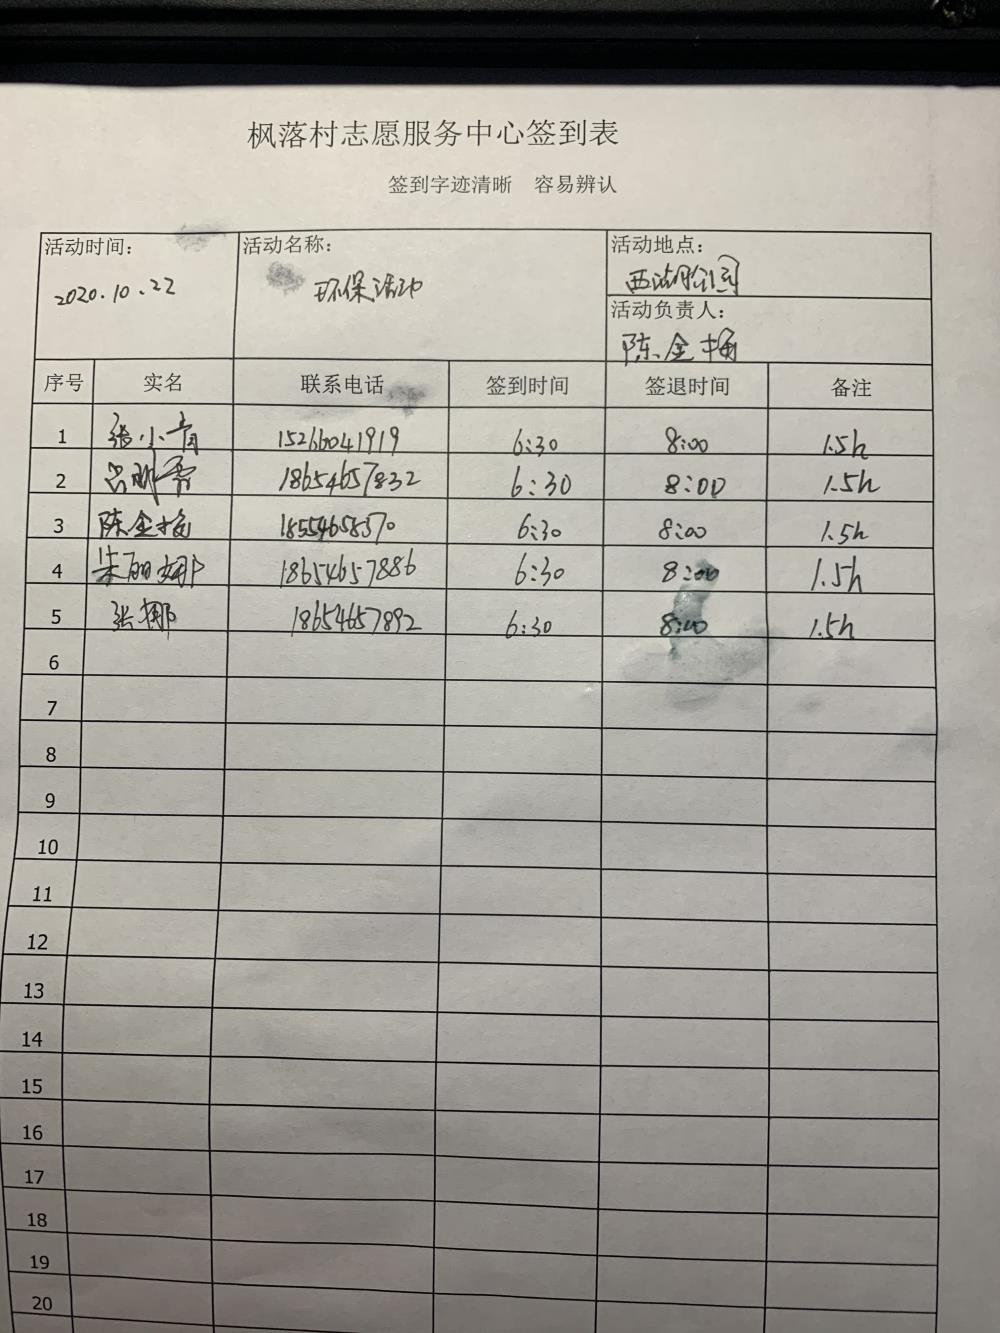 枫落村志愿服务中心签到表
签到字迹清晰 容易辨认
活动时间: 活动名称: 活动地点:
2020.10.22 环保活动 西湖公园
活动负责人:
陈金梅
序号 实名 联系电话 签到时间 签退时间 备注
1 张小青 15266041919 6:30 8:00 1.5h
2 吕 18654657832 6:30 8:00 1.5h
3 陈金梅 18554658370 6:30 8:00 1.5h
4 朱丽娜 18654657886 6:30 8:00 1.5h
5 张娜 18654657892 6:30 8:00 1.5h
6
7
8
9
10
11
12
13
14
15
16
17
18
19
20